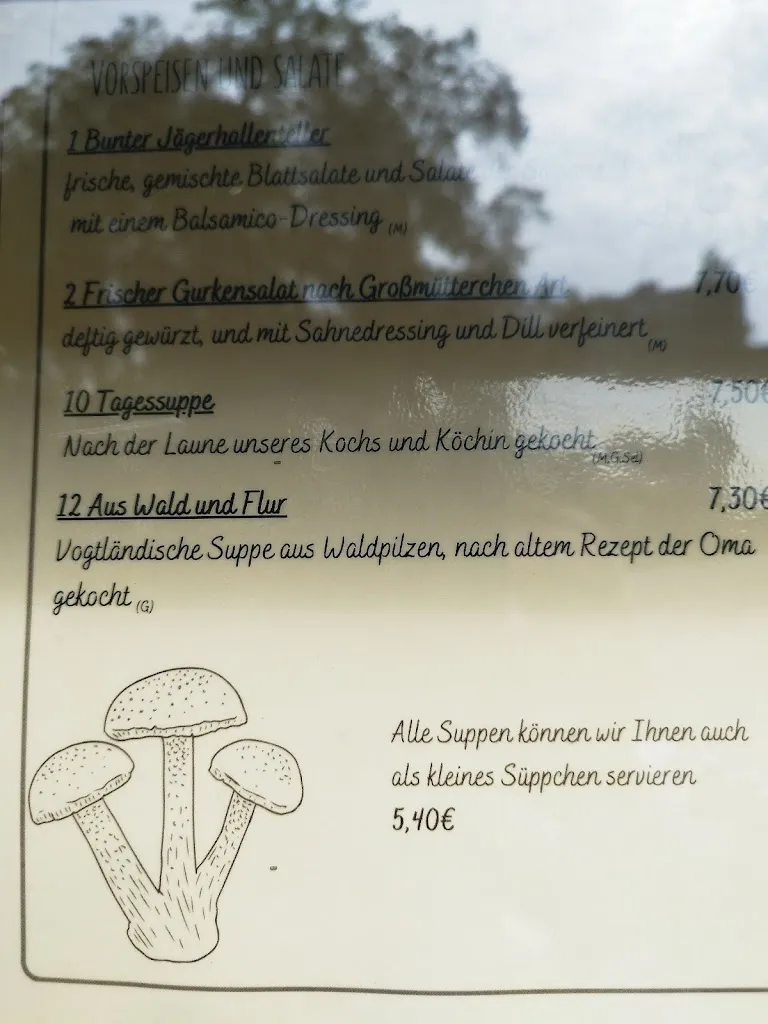 VORSPEISEN UND SALATE
1 Bunter Jägerhallerteller
frische, gemischte Blattsalate und Salate
mit einem Balsamico-Dressing (M)
2 Frischer Gurkensalat nach Großmütterchen Art 7,70€
deftig gewürzt, und mit Sahnedressing und Dill verfeinert (M)
10 Tagessuppe 7,50€
Nach der Laune unseres Kochs und Köchin gekocht (M,G,Sel)
12 Aus Wald und Flur 7,30€
Vogtländische Suppe aus Waldpilzen, nach altem Rezept der Oma
gekocht (G)
Alle Suppen können wir Ihnen auch
als kleines Süppchen servieren
5,40€